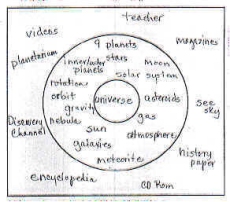 teacher
videos
9 planets
magazines
planetarium
stars
inner/outer
planets
moon
solar system
rotation
orbit
universe
asteroids
see
sky
gravity
gas
Discovery
Channel
nebula
sun
atmosphere
galaxies
history
paper
meteorite
encyclopedia
CD Rom